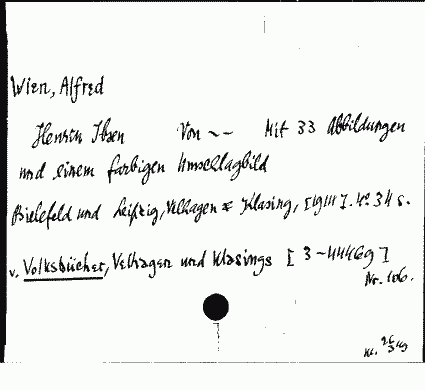 Wien, Alfred
Henrik Ibsen Von ~~ Mit 33 Abbildungen
und einem farbigen Umschlagbild
Bielefeld und Leipzig, Velhagen & Klasing, [1911]. 4° 34 S.
v. Volksbücher, Velhagen und Klasings [3-44469]
Nr. 106.